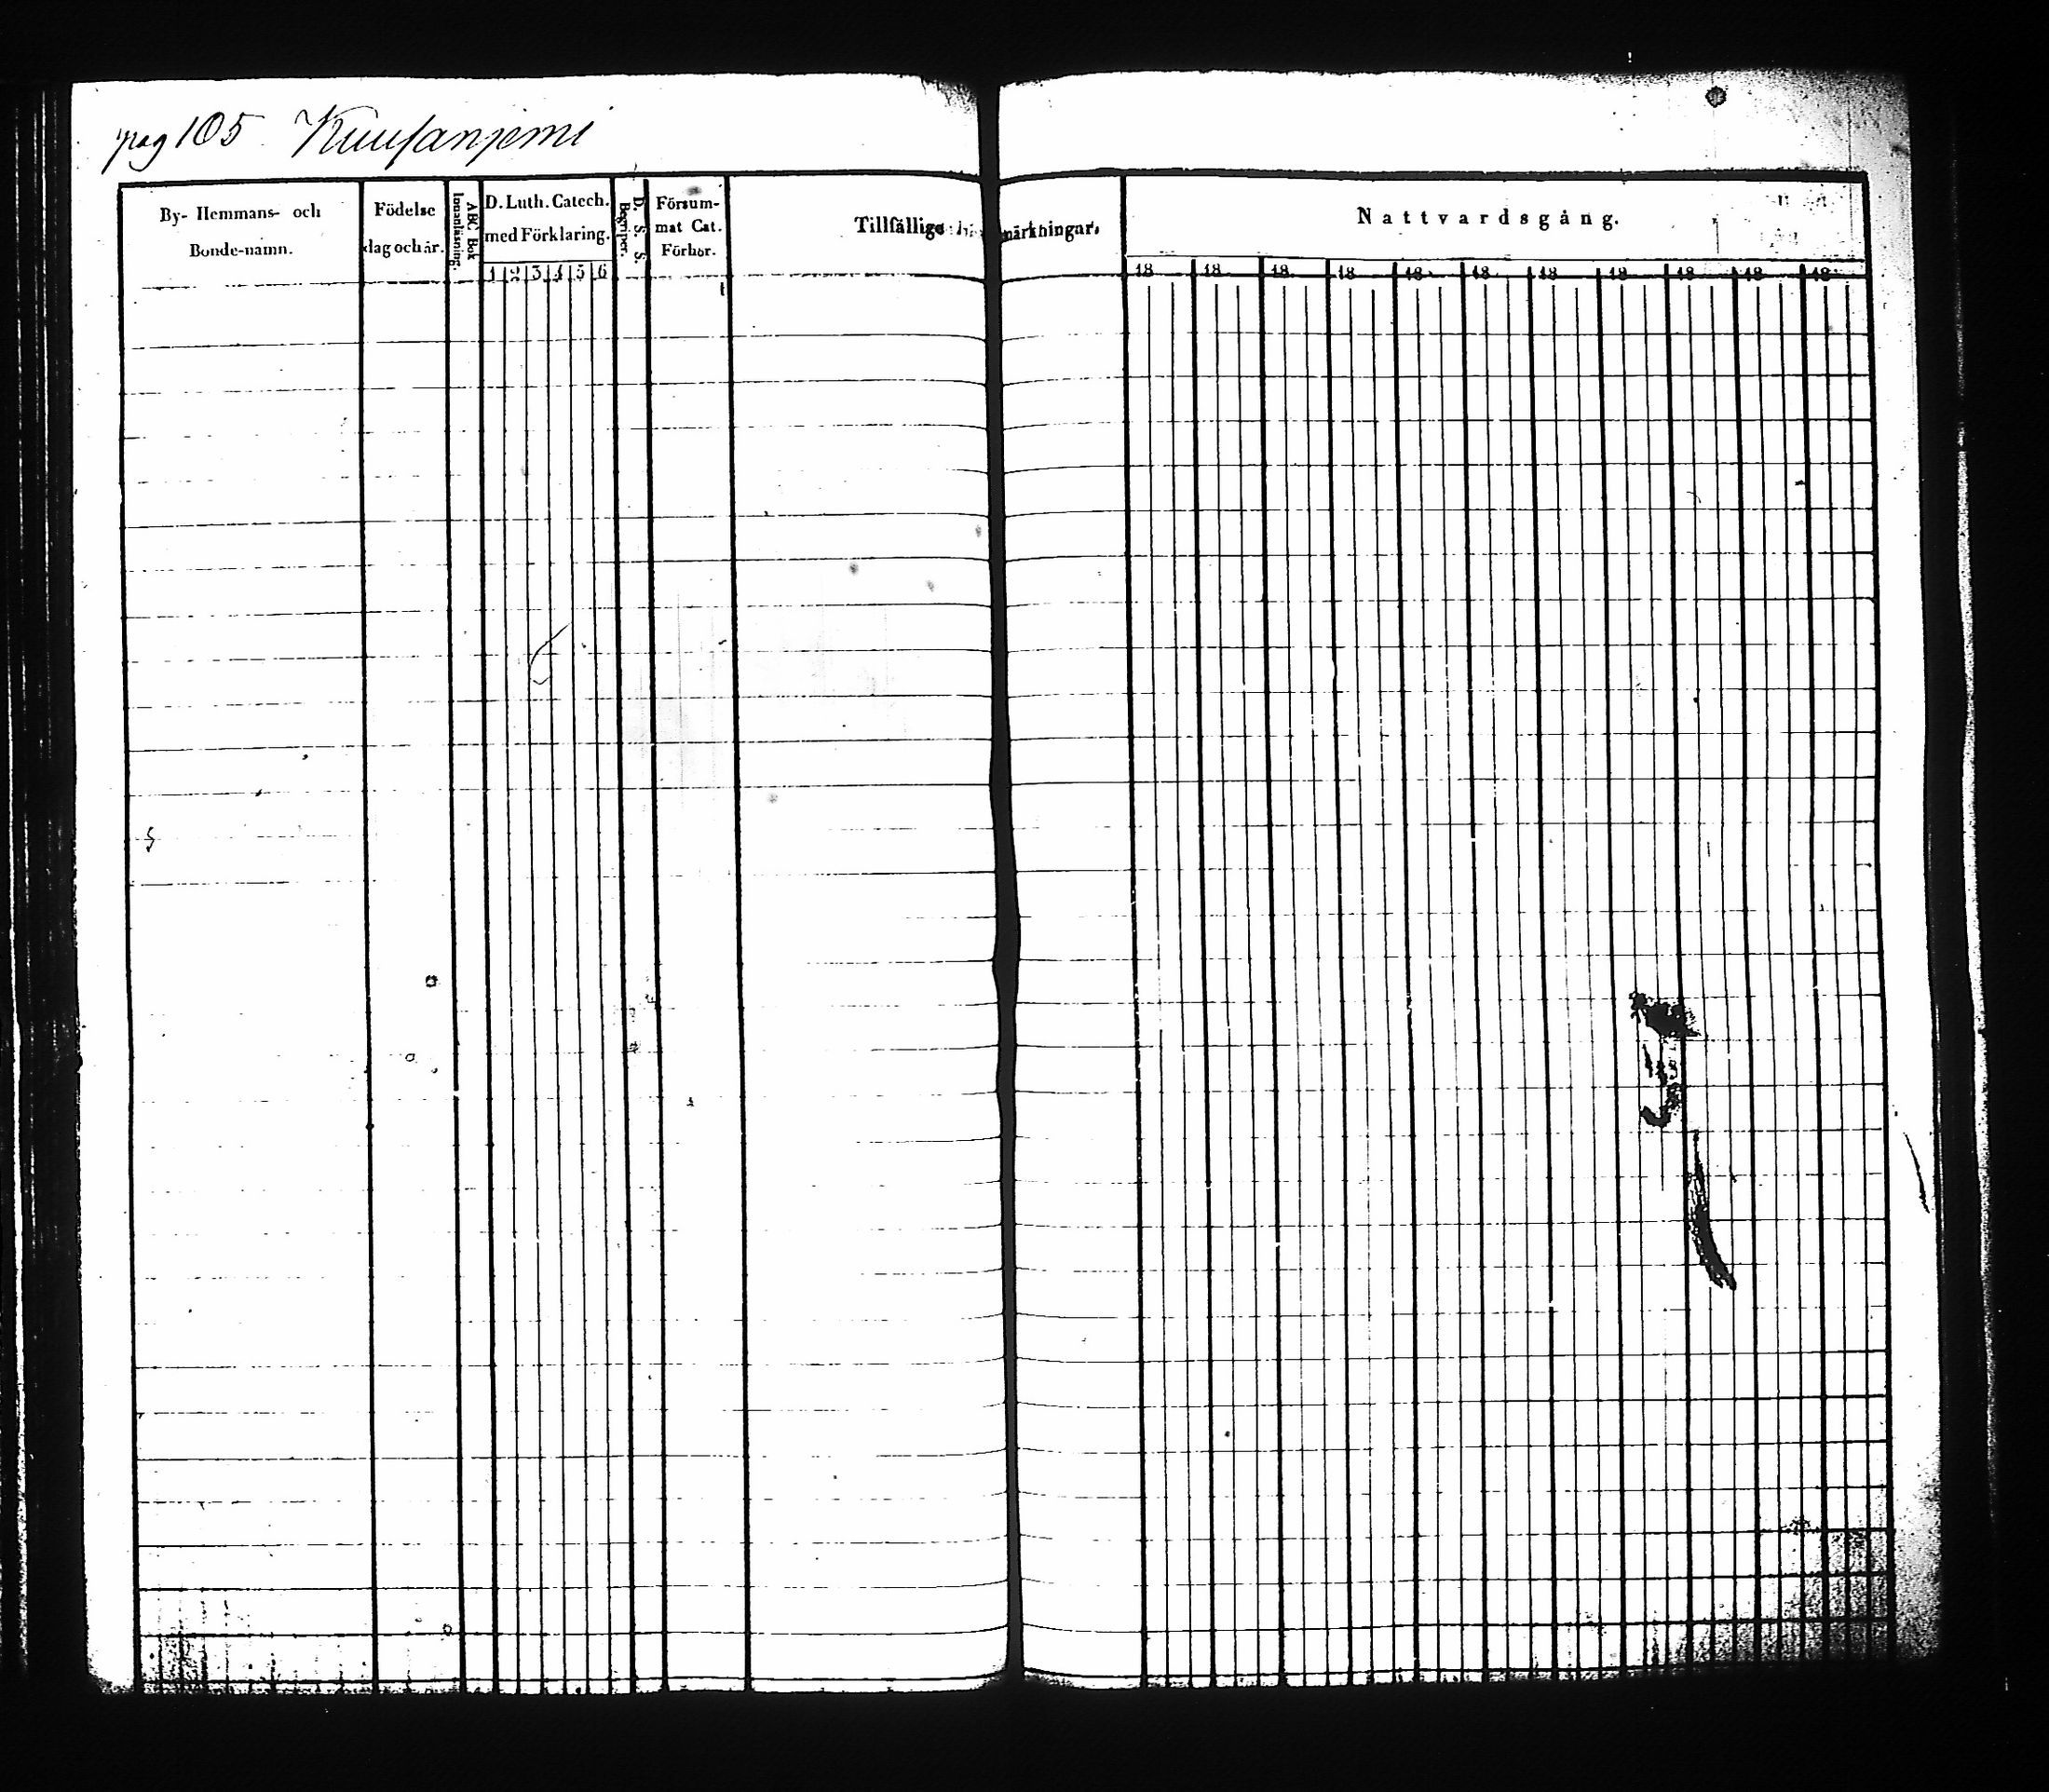 pag 105 Kuusanjemi
By- Hemmans- och
Bonde-namn.
Födelse
dag och år.
ABC Bok
Innanläsning.
D. Luth. Catech.
med Förklaring.
1 2 3 4 5 6
D. S. S.
Begriper.
Försum-
mat Cat.
Förhör.
Tillfällige märkningar.
Nattvardsgång.
18 18 18 18 18 18 18 18 18 18 18